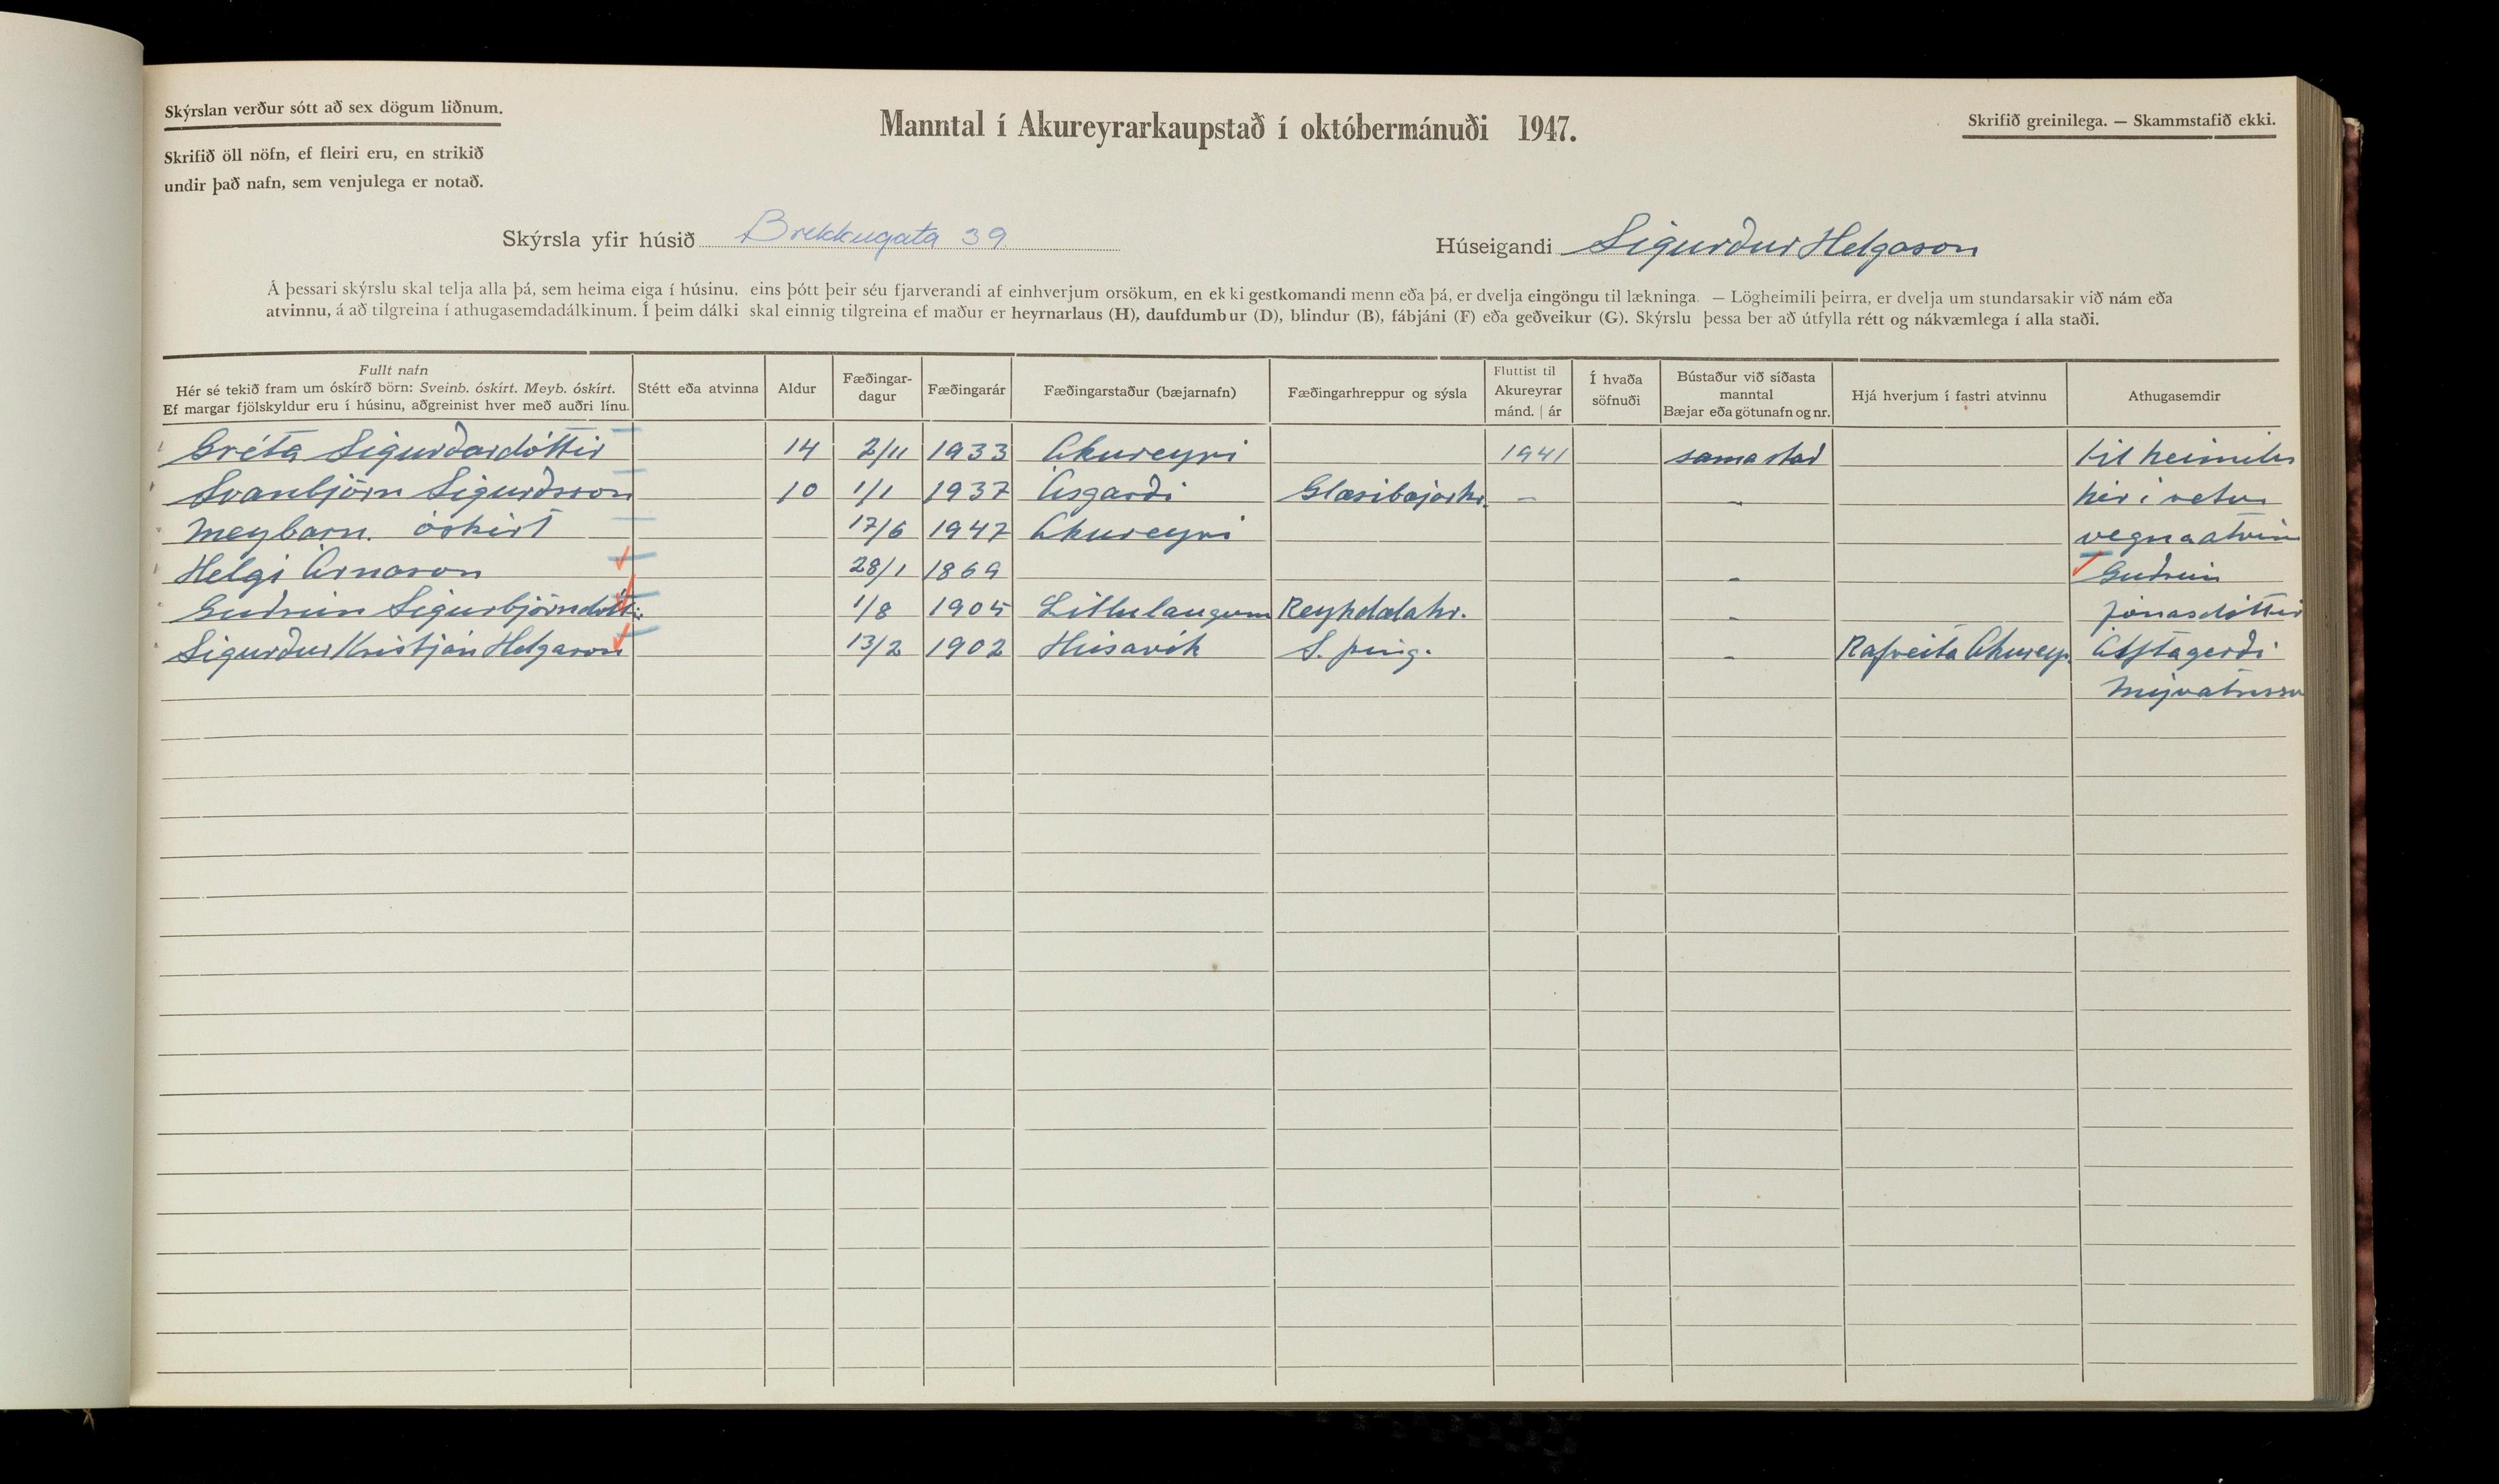 Skýrslan verður sótt að sex dögum liðnum.
Skrifið öll nöfn, ef fleiri eru, en strikið
undir það nafn, sem venjulega er notað.
Manntal í Akureyrarkaupstað í októbermánuði 1947.
Skrifið greinilega. — Skammstafið ekki.
Skýrsla yfir húsið Brekkugata 39
Húseigandi Sigurður Helgason
Á þessari skýrslu skal telja alla þá, sem heima eiga í húsinu, eins þótt þeir séu fjarverandi af einhverjum orsökum, en ekki gestkomandi menn eða þá, er dvelja eingöngu til lækninga. — Lögheimili þeirra, er dvelja um stundarsakir við nám eða
atvinnu, á að tilgreina í athugasemdadálkinum. Í þeim dálki skal einnig tilgreina ef maður er heyrnarlaus (H), daufdumbur (D), blindur (B), fábjáni (F) eða geðveikur (G). Skýrslu þessa ber að útfylla rétt og nákvæmlega í alla staði.
Fullt nafn
Hér sé tekið fram um óskírð börn: Sveinb. óskírt. Meyb. óskírt.
Ef margar fjölskyldur eru í húsinu, aðgreinist hver með auðri línu.
Stétt eða atvinna
Aldur
Fæðingar-
dagur
Fæðingarár
Fæðingarstaður (bæjarnafn)
Fæðingarhreppur og sýsla
Fluttist til
Akureyrar
mánd. | ár
Í hvaða
söfnuði
Bústaður við síðasta
manntal
Bæjar eða götunafn og nr.
Hjá hverjum í fastri atvinnu
Athugasemdir
Gréta Sigurðardóttir 14 2/11 1933 Akureyri 1941 sama stað til heimilis
Svanbjörn Sigurðsson 10 1/1 1937 Ásgarði Glæsibæjarhr. – – hér í vetur
Meybarn. óskírt 17/6 1947 Akureyri vegna atvin
Helgi Árnason 28/1 1869 – Guðrún
Guðrún Sigurbjörnsdótt: 1/8 1905 Litlulaugum Reykdælahr. – Jónasdóttir
Sigurður Kristján Helgason 13/2 1902 Húsavík S. þing. – Rafveita Akureyr. Álftagerði
Mývatnssv